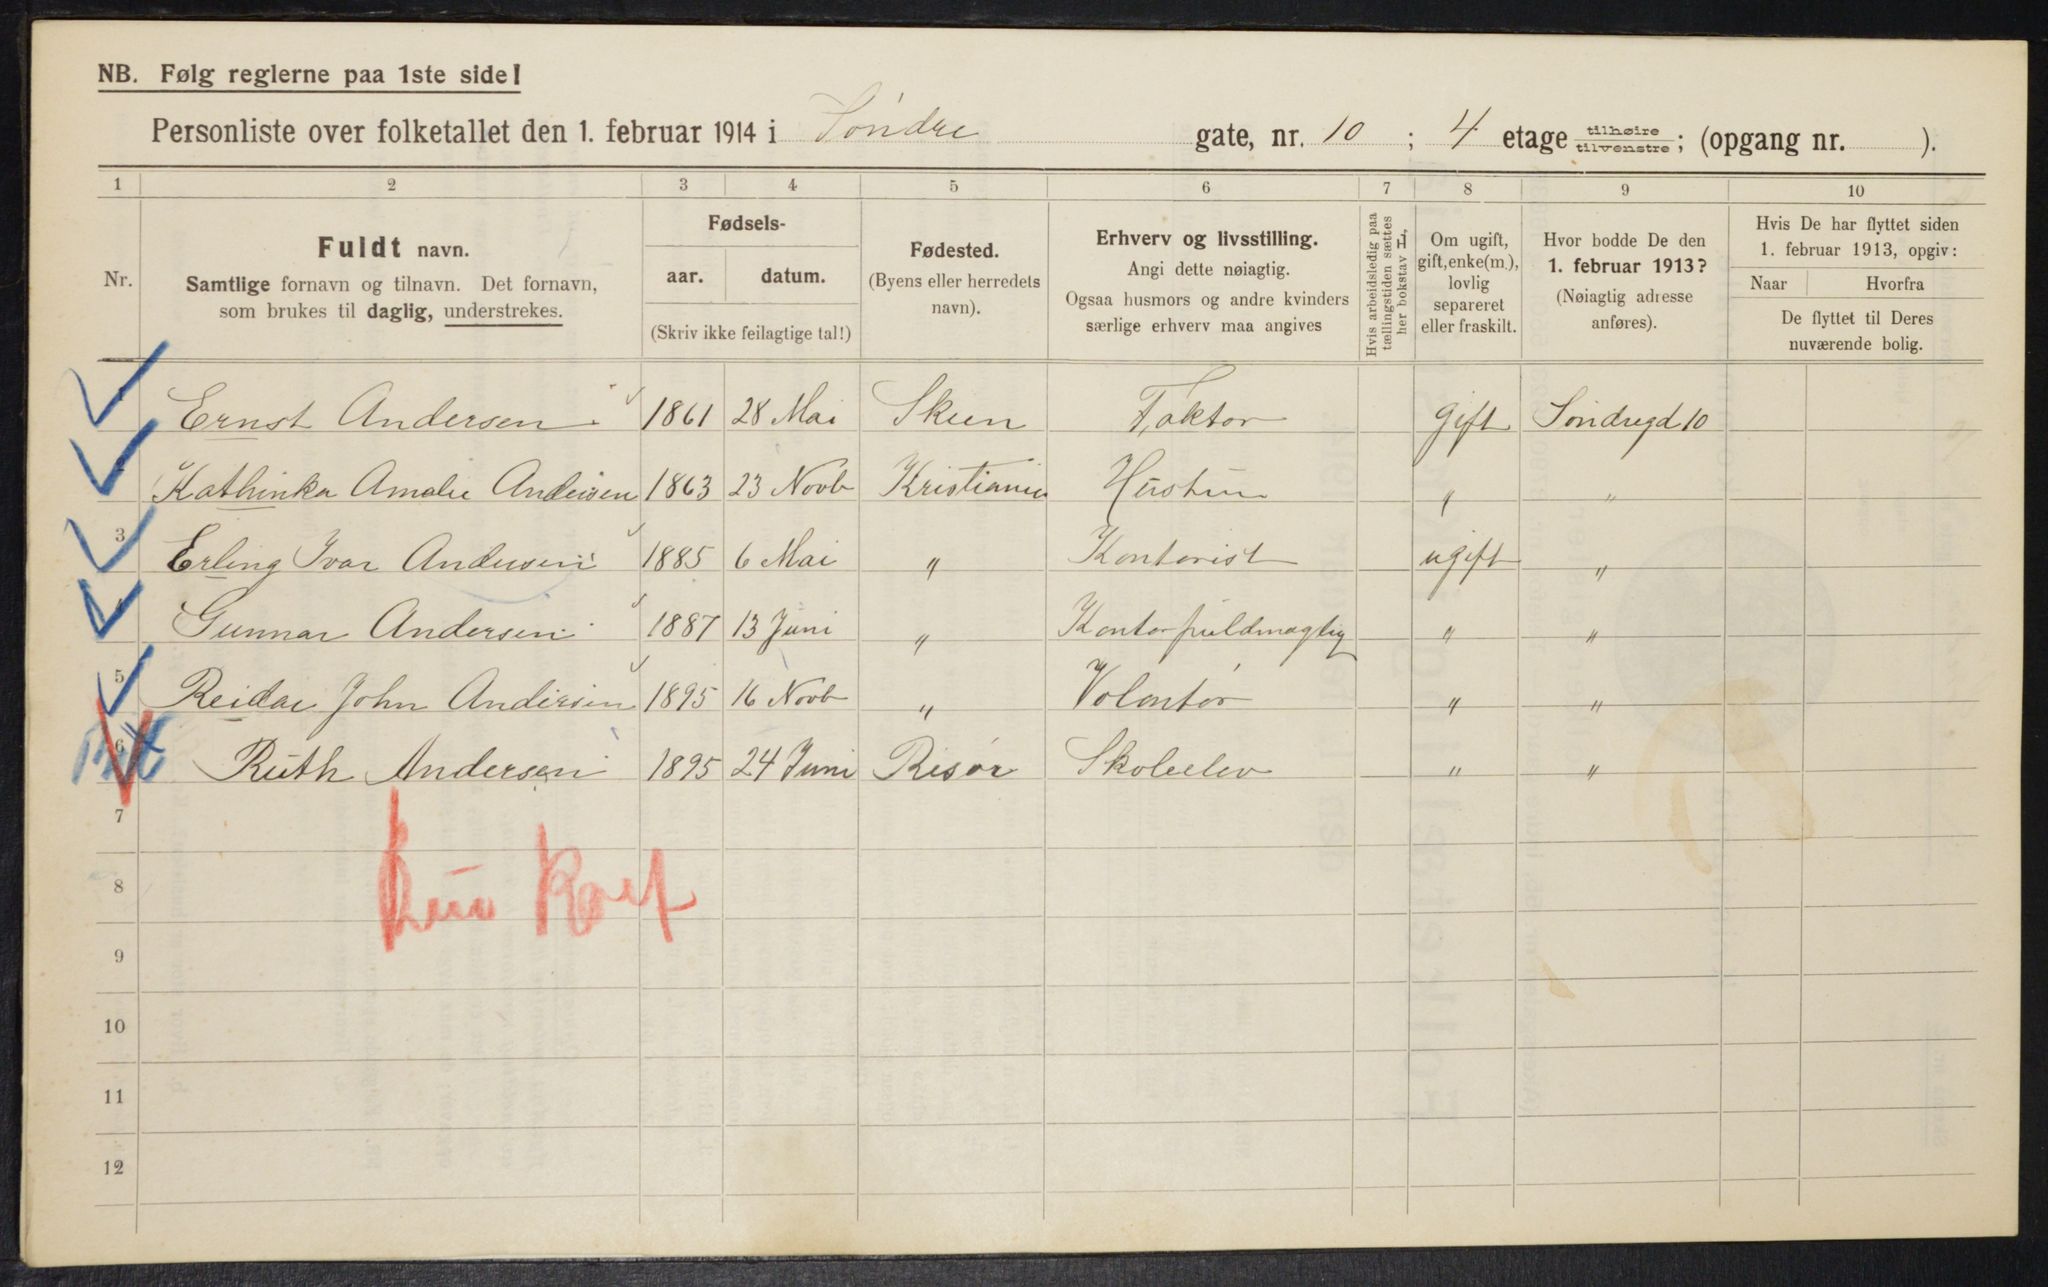 NB. Følg reglerne paa 1ste side!
Personliste over folketallet den 1. februar 1914 i Søndre gate, nr. 10 ; 4 etage tilhøire tilvenstre; (opgang nr. ).
1 2 3 4 5 6 7 8 9 10
Nr.
Fuldt navn.
Samtlige fornavn og tilnavn. Det fornavn,
som brukes til daglig, understrekes.
Fødsels-
aar. datum.
(Skriv ikke feilagtige tal!)
Fødested.
(Byens eller herredets
navn).
Erhverv og livsstilling.
Angi dette nøiagtig.
Ogsaa husmors og andre kvinders
særlige erhverv maa angives
Hvis arbeidsledig paa
tællingstiden sættes
her bokstav L.
Om ugift,
gift, enke(m.),
lovlig
separeret
eller fraskilt.
Hvor bodde De den
1. februar 1913?
(Nøiagtig adresse
anføres).
Hvis De har flyttet siden
1. februar 1913, opgiv:
Naar Hvorfra
De flyttet til Deres
nuværende bolig.
1 Ernst Andersen 1861 28 Mai Skien Faktor gift Søndregd 10
2 Kathinka Amalie Andersen 1863 23 Novb Kristiania Hustru " "
3 Erling Ivar Andersen 1885 6 Mai " Kontorist ugift "
4 Gunnar Andersen 1887 13 Juni " Kontorfuldmægtig " "
5 Reidar John Andersen 1895 16 Novb " Volontør " "
6 Ruth Andersen 1895 24 Juni Risør Skoleelev " "
7
8
9
10
11
12